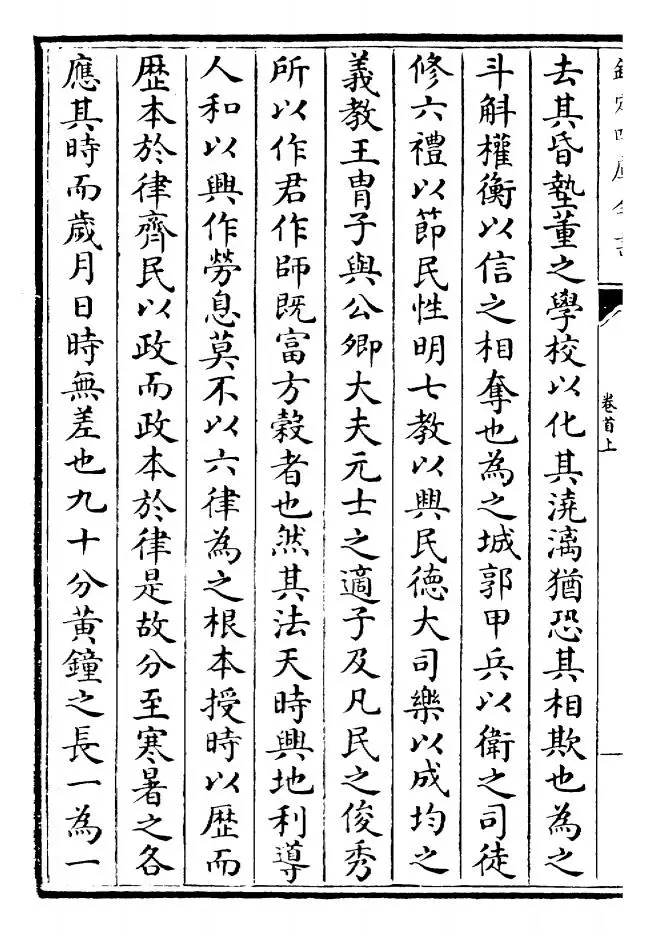 欽定四庫全書
卷首上
去其昏墊董之學校以化其澆漓猶恐其相欺也為之
斗斛權衡以信之相奪也為之城郭甲兵以衛之司徒
修六禮以節民性明七教以興民德大司樂以成均之
義教王胄子與公卿大夫元士之適子及凡民之俊秀
所以作君作師既富方穀者也然其法天時興地利導
人和以興作勞息莫不以六律為之根本授時以歴而
歴本於律齊民以政而政本於律是故分至寒暑之各
應其時而歲月日時無差也九十分黃鐘之長一為一